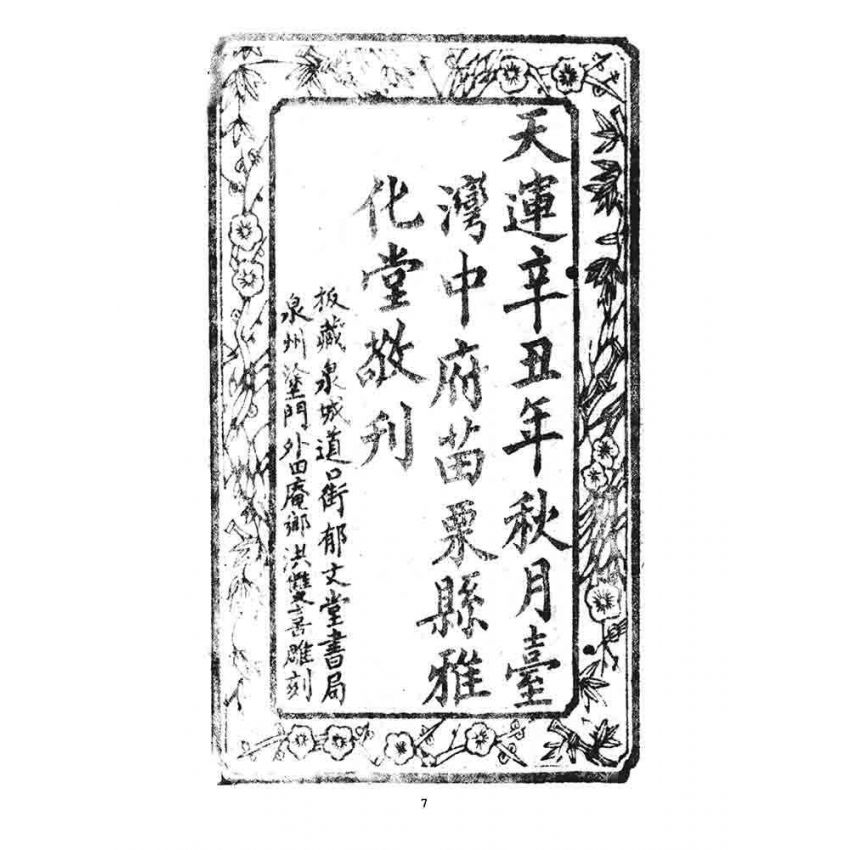 天運辛丑年秋月臺
灣中府苗栗縣雅
化堂敬刊
板藏泉城道口街郁文堂書局
泉州塗門外田庵鄉洪雙喜雕刻
7